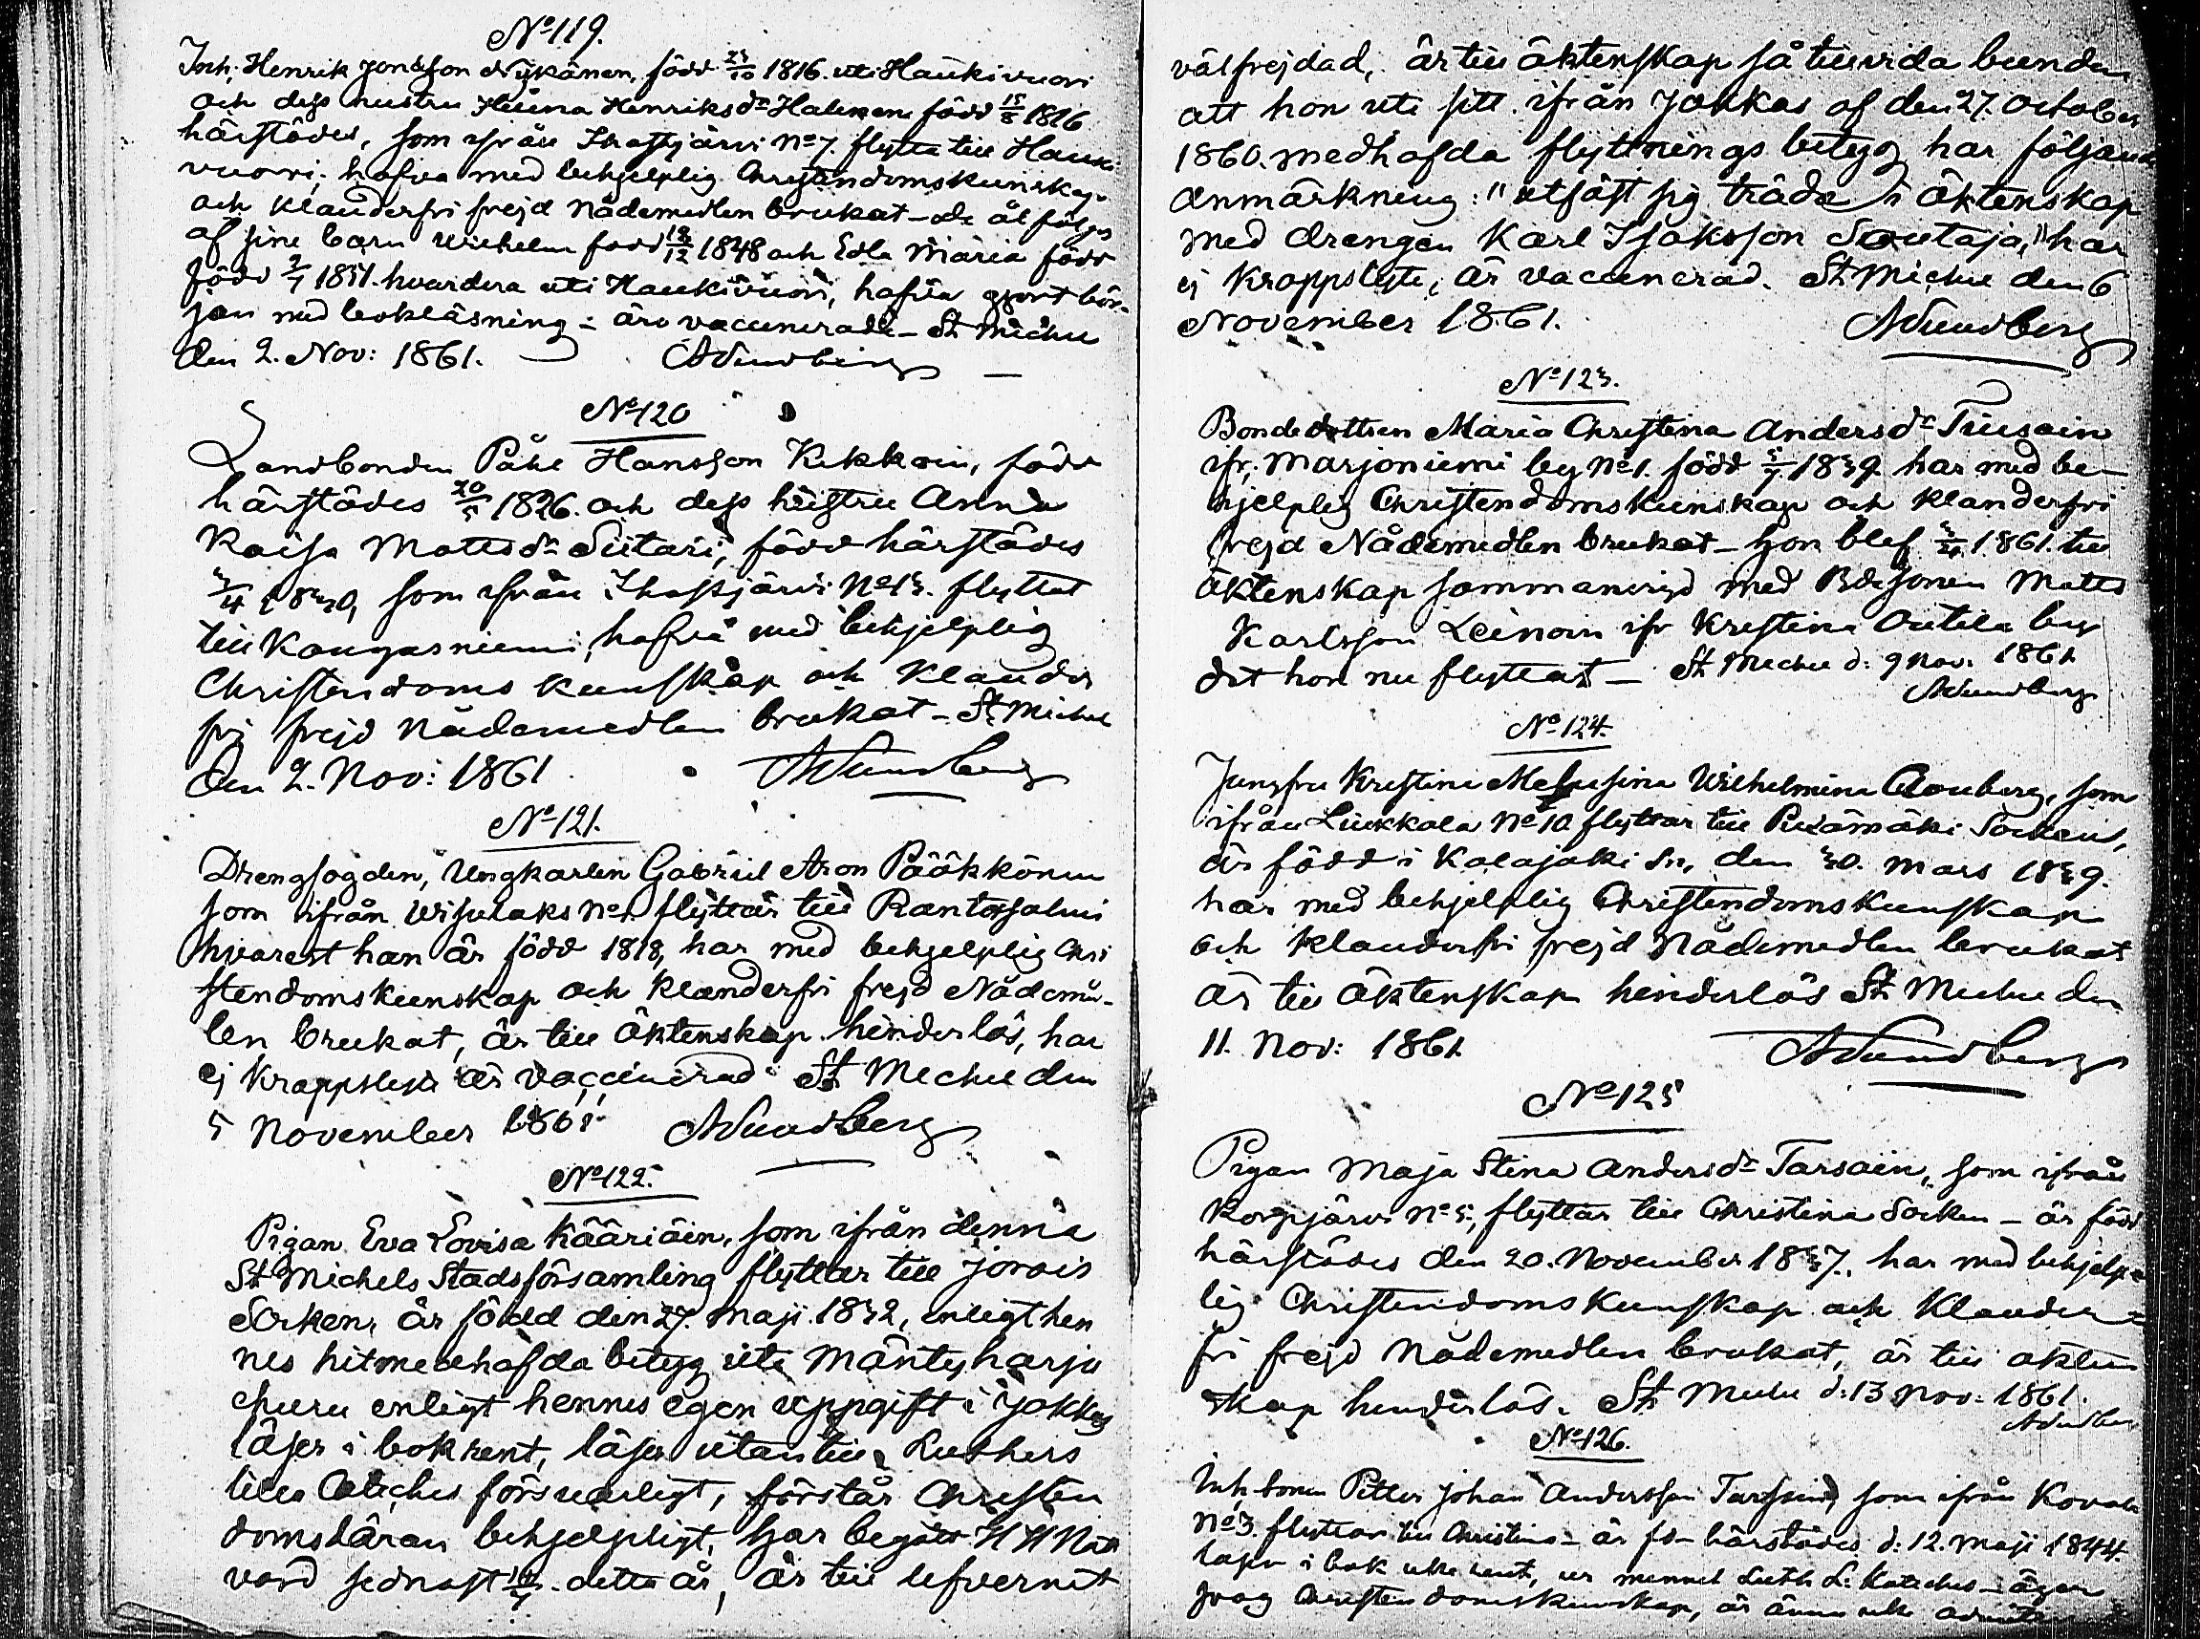 No 119.
Inh. Henrik Jonasson Nykänen, född 23/10 1816. uti Haukivuori
och dess hustru Helena Henriksdr Halinen född 15/8 1816
härstädes, som ifrån Ihastjärvi No 7. flytta till Hauki
vuori, hafva med behjelplig Christendomskunskap
och klanderfri frejd Nådemedlen brukat – åtföljas
af sine barn Wilhelm född 18/12 1848 och Edla Maria född
född 2/7 1851. hvardera uti Haukivuori, hafva gjort bör-
jan med bokläsning – äro vaccinerade – St Michel
den 2. Nov: 1861. A Sundberg
No 120
Landbonden Påhl Hansson Kekkoin, född
härstädes 20/5 1826. och dess hustru Anna
Kaisa Mattsdr Siitari, född härstädes
3/4 1830, som ifrån Ihastjärvi No 13. flyttat
till Kangasniemi, hafva med behjelplig
Christendoms kunskap och klander
fri frejd Nådemedlen brukat – St Michel
den 2. Nov: 1861 A Sundberg
No 121.
Drengfogden, Ungkarlen Gabriel Aron Pääkkönen
som ifrån Wisulaks No 1. flyttar till Rantasalmi
hvarest han är född 1818, har med behjelplig Chri
stendomskunskap och klanderfri frejd Nådemed-
len brukat, är till äktenskap hinderlös, har
ej kroppslyte är vaccinerad St Michel den
5 November 1861. A Sundberg
No 122.
Pigan Eva Lovisa Kääriäin, som ifrån denna
St Michels Stadsförsamling flyttar till Jorois
Socken, är född den 27. Maji 1832, enligt hen
nes hitmedhafda betyg uti Mäntyharju
men enligt hennes egen uppgift i Jokkas
läser i bok rent, läser utantill Luthers
lilla Cateches försvarligt, förstår Christen
domsläran behjelpligt, har begått H H Natt
vard sednast detta år, är till lefvernet
välfrejdad, är till äktenskap så tillvida bunden
att hon uti sitt ifrån Jokkas af den 27. October
1860. medhafda flyttnings betyg har följande
Anmärkning: "utfäst sig träda i äktenskap
med drengen Karl Isaksson Soutaja," har
ej kroppslyte, är vaccinerad. St Michel den 6
November 1861. A Sundberg
No 123.
Bondedottren Maria Christina Andersdr Tiusain
ifr. Marjoniemi by No 1. född 5/7 1839 har med be-
hjelplig Christendomskunskap och klanderfri
frejd Nådemedlen brukat – hon blef 3/11 1861. till
äktenskap sammanvigd med Bdesonen Matts
Karlsson Leinoin ifr Kristina Outila by
dit hon nu flyttat – St Michel d: 9 Nov: 1861
A Sundberg
No 124.
Jungfru Kristina Melusina Wilhelmina Cronberg, som
ifrån Liukkala No 10 flyttar till Pieksämäki Socken,
är född i Kalajoki Sn, den 30. Mars 1839.
har med behjelplig Christendomskunskap
och klanderfri frejd Nådemedlen brukat
är till äktenskap hinderlös St Michel den
11. Nov: 1861 A Sundberg
No 125
Pigan Maja Stina Andersdr Tarsain, som ifrån
Korpijärvi No 5., flyttar till Christina Socken – är född
härstädes den 20. November 1837., har med behjelp-
lig Christendomskunskap och klander-
fri frejd Nådemedlen brukat, är till äkten
skap hinderlös. St Michel d: 13 Nov: 1861.
A Sundberg
No 126.
Inh. sonen Petter Johan Andersson Tarssain, som ifrån Kovala
No 3. flyttar till Christina – är fd härstädes d. 12. Maji 1844.
läser i bok icke rent, ur minnet Luth. L: Kateches – äger
svag Christendomskunskap, är ännu icke